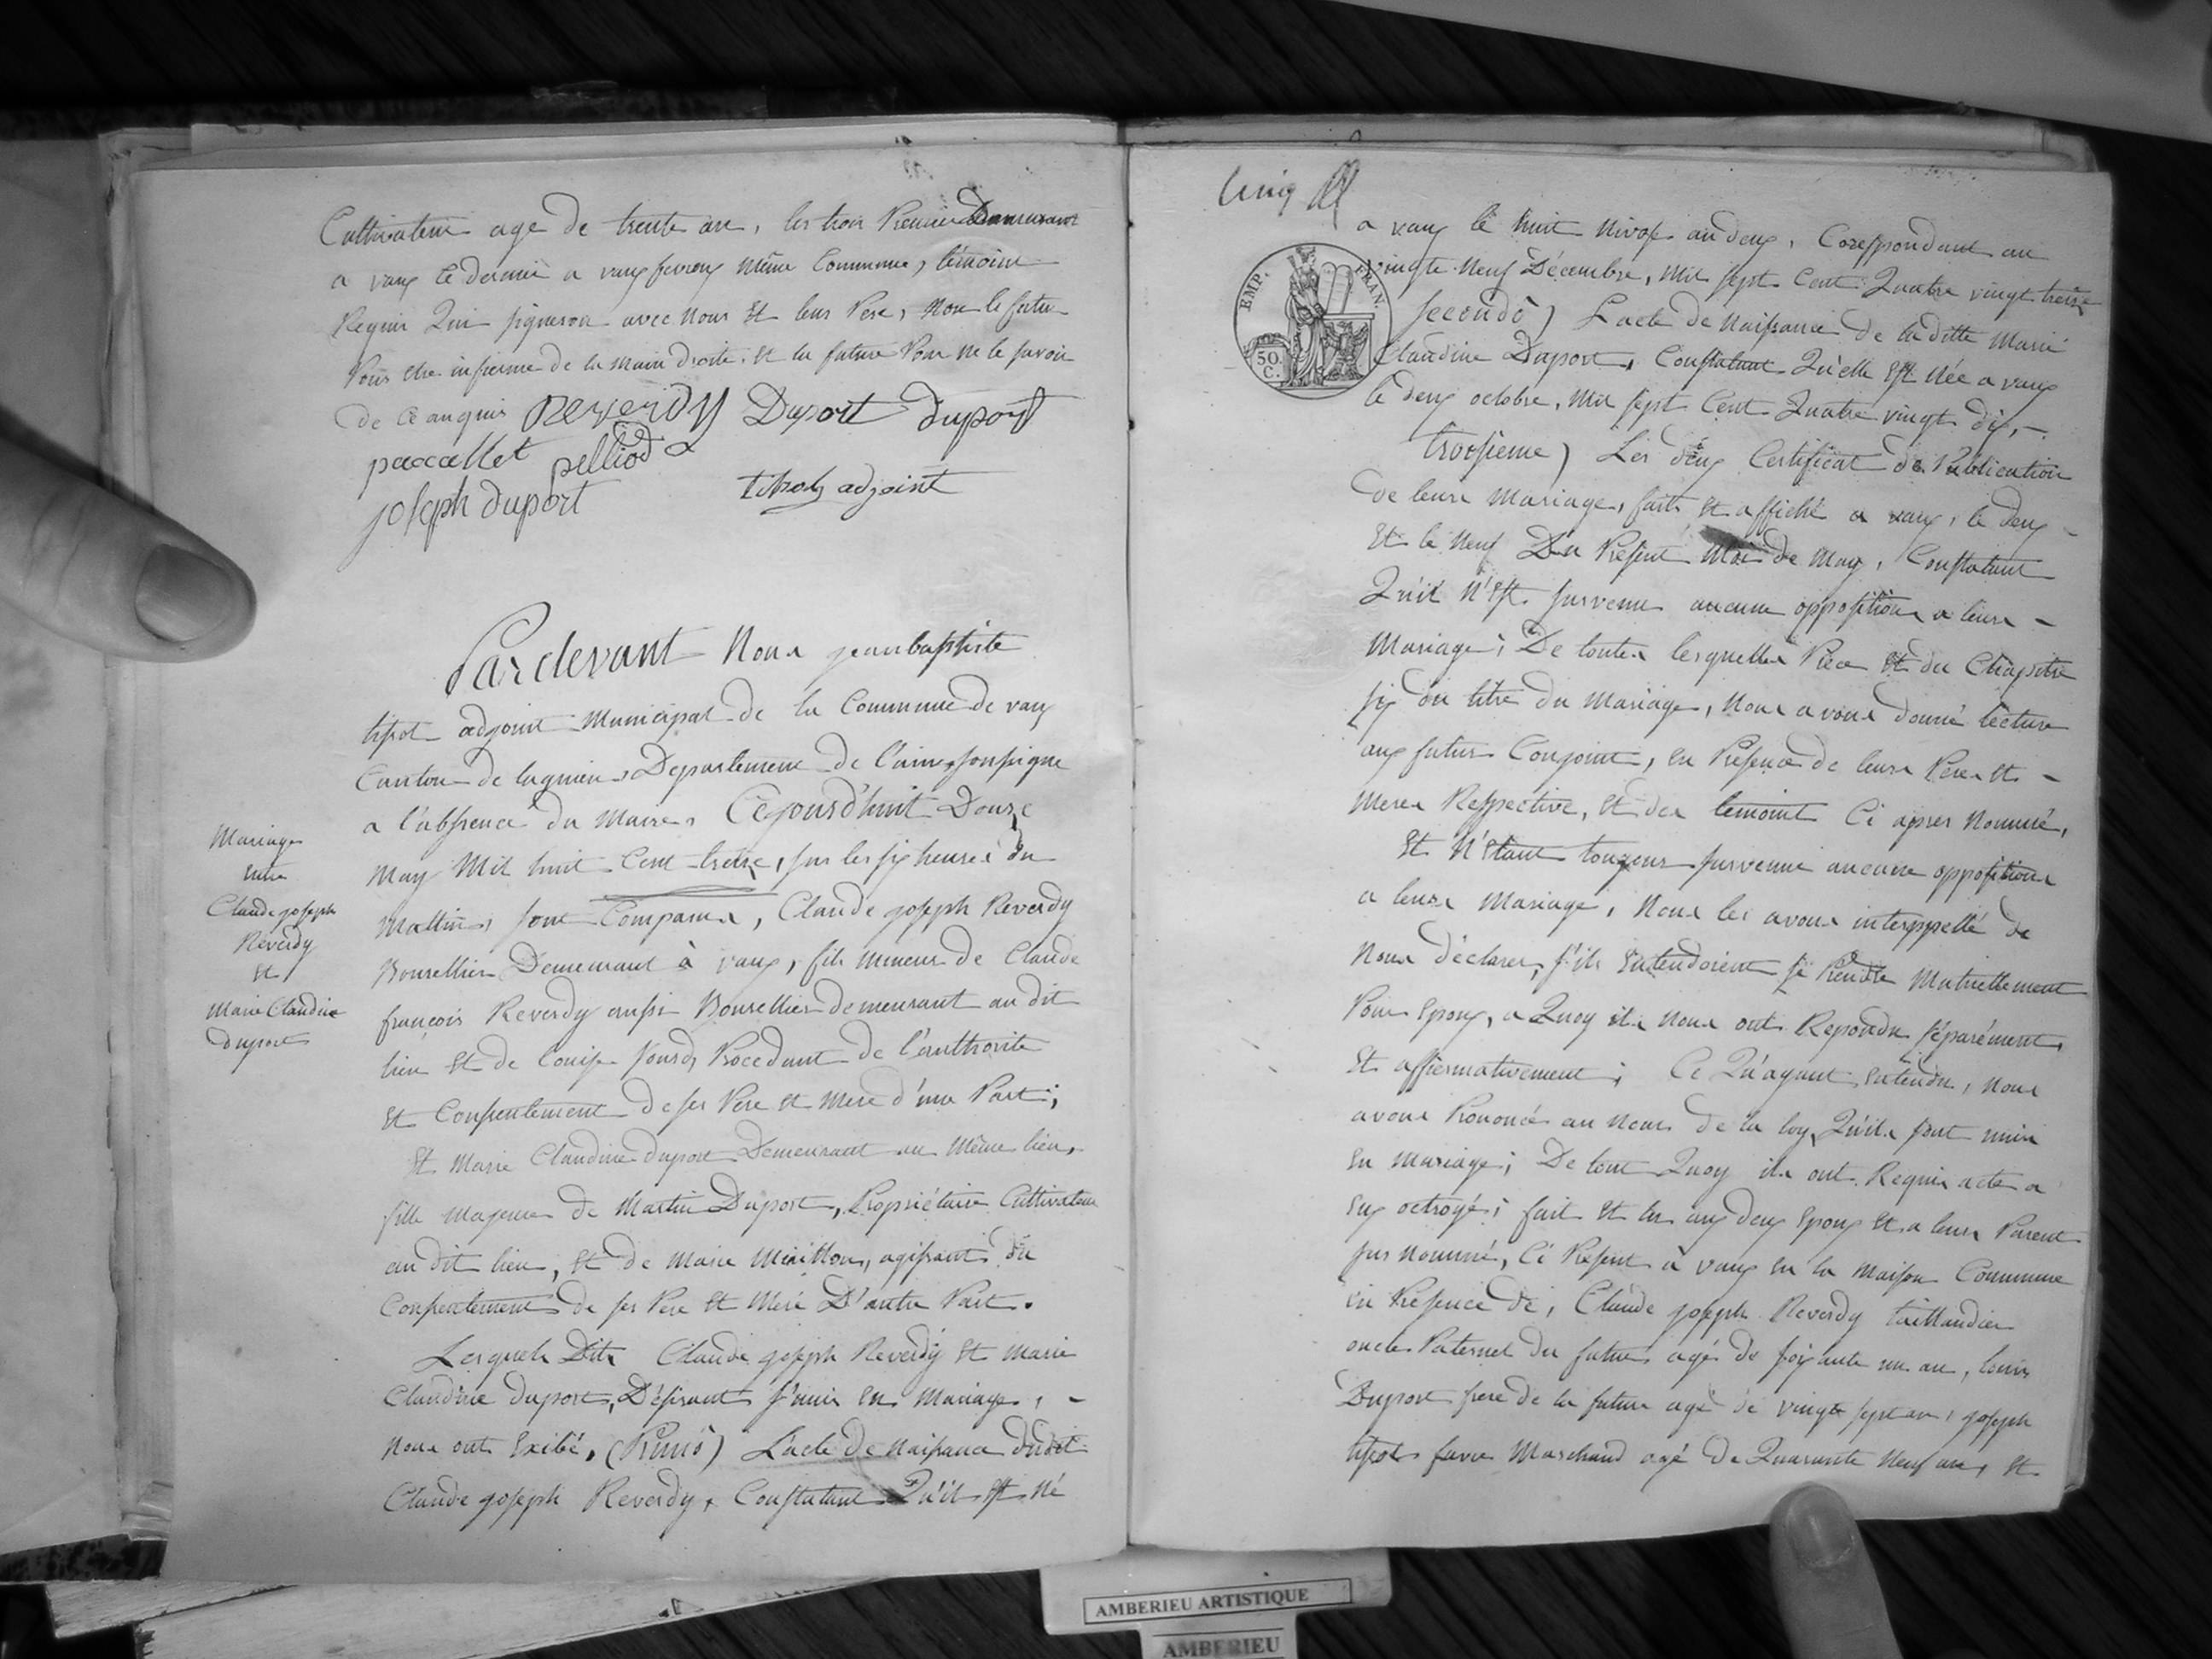 Cultivateur agé de trente ans, les trois Premiers Demeurant
a vaux le dernier a vaux fevroux même Commune, témoins
Requis Qui signeron avec Nous Et leur Pere, Non le futur
Pour etre infierme de la main droite. Et la future Pour ne le savoir
de ce anquis REVERDY Duport duport
pelliod
joseph duport
tihot adjoint
Pardevant Nous jean baptiste
tihot adjoint Municipal de la Commune de vaux
Canton de lagnieu, Departement de l'ain, soussigné
a l'absence du Maire, Cejourd'huit Douze
May Mil huit Cent treize, sur les six heures du
Mattin, sont Comparus, Claude joseph Reverdy
Bourellier Demeurant à vaux, fils mineur de Claude
françois Reverdy aussi Bourellier demeurant au dit
lieu Et de Louise Procedant de l'authorité
Et Consentement de ses Pere Et Mere d'une Part;
Et Marie Claudine duport Demeurant au Même lieu,
fille Majeure de Martin Duport, Propriétaire Cultivateur
au dit lieu, Et de Marie agissant du
Consentement de ses Pere Et Mere D'autre Part.
Lesquels Dits Claude joseph Reverdy Et Marie
Claudine duport, Désirant s'unir En Mariage, -
Nous ont Exibé, (Primò) L'acte de Naissance dudit
Claude joseph Reverdy, Constatant Qu'il Est Né
Mariage
Entre
Claude joseph
Reverdy
Et
Marie Claudine
duport
Cinq
EMP. FRAN.
50 C.
a vaux le huit Nivose an deux, Corespondant au
vingte Neuf Décembre, Mil sept Cent Quatre vingt treize
secondò) L'acte de Naissance de la ditte Marie
Claudine Duport, Constatant Qu'elle Est Née a vaux
le deux octobre, Mil sept Cent Quatre vingt dix, -
troosieme) Les deux Certificat de Publication
de leurs Mariage, faits Et affiché a vaux, le deux -
Et le Neuf Du Present Mois de May, Constatant
Qu'il N'Est survenu aucune opposition a leurs -
Mariage; De toutes lesquelles Piece Et du Chapitre
six du titre du Mariage, Nous avons donné lecture
aux futurs Conjoint, en Présence de leurs Peres Et -
Meres Respective, Et des temoint Ci apres Nommé,
Et N'Etant toujours survenue aucune oppositions
a leurs Mariage, Nous les avons interppellé de
Nous déclarer, s'ils Entendoient se Prendre Mutuellement
Pour Epoux, a Quoy ils Nous ont Repondu séparément,
Et affiermativement; Ce Qu'ayant Entendu, Nous
avons Prononcé au Nom de la loy, Qu'ils sont unis
En Mariage; De tout Quoy ils ont Requis acte a
Eux octroyé; fait Et lu aux deux Epoux Et a leurs Parent
sus Nommé, Ci Present à vaux En la Maison Commune
En Présence de, Claude joseph Reverdy taillandier
oncle Paternel du futur agé de soixante un an, louis
Duport frere de la future agé de vingt sept ans, joseph
tihot favre Marchand agé de Quarante Neuf ans, Et
AMBERIEU ARTISTIQUE
AMBERIEU